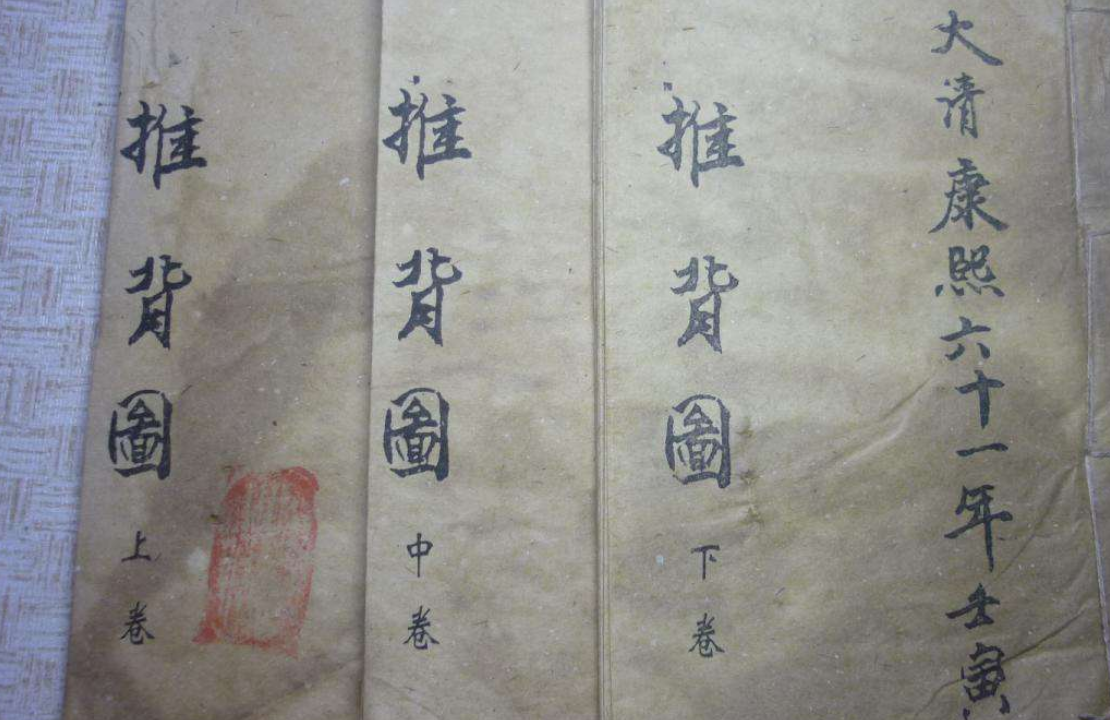 大清康熙六十一年壬寅
推背圖
下卷
推背圖
中卷
推背圖
上卷